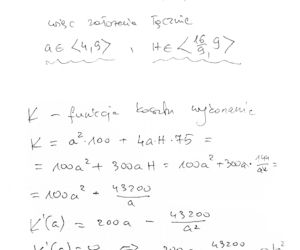 więc założenia łącznie
a ∈ <4,9> , H ∈ <16/9, 9>
K – funkcja kosztu wykonania
K = a²·100 + 4a·H·75 =
= 100a² + 300aH = 100a² + 300a·144/a² =
= 100a² + 43200/a
K'(a) = 200a − 43200/a²